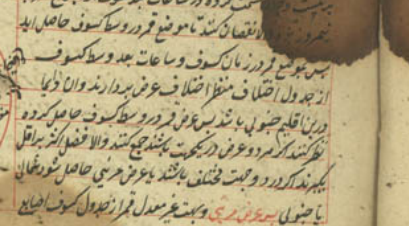 قسمت کرده در ساعات بعد وسط کسوف
نقصان کنند تا موضع قمر در وسط کسوف حاصل اید
پس بموضع قمر در زمان کسوف و ساعات بعد وسط کسوف
از جدول اختلاف منظر اختلاف عرض بردارند و ان دایما
درین اقلیم جنوبی باشد پس عرض قمر در وسط کسوف حاصل کرده
نظر کنند اکر هر دو عرض در یکجهت باشند جمع کنند و الا فضل اکثر بر اقل
بکیرند اکر در دو جهت مختلف باشند تا عرض مرئی حاصل شود شمالی
یا جنوبی پس عرض مرئی و بهت غیر معدل قمر از جدول کسوف اصابع